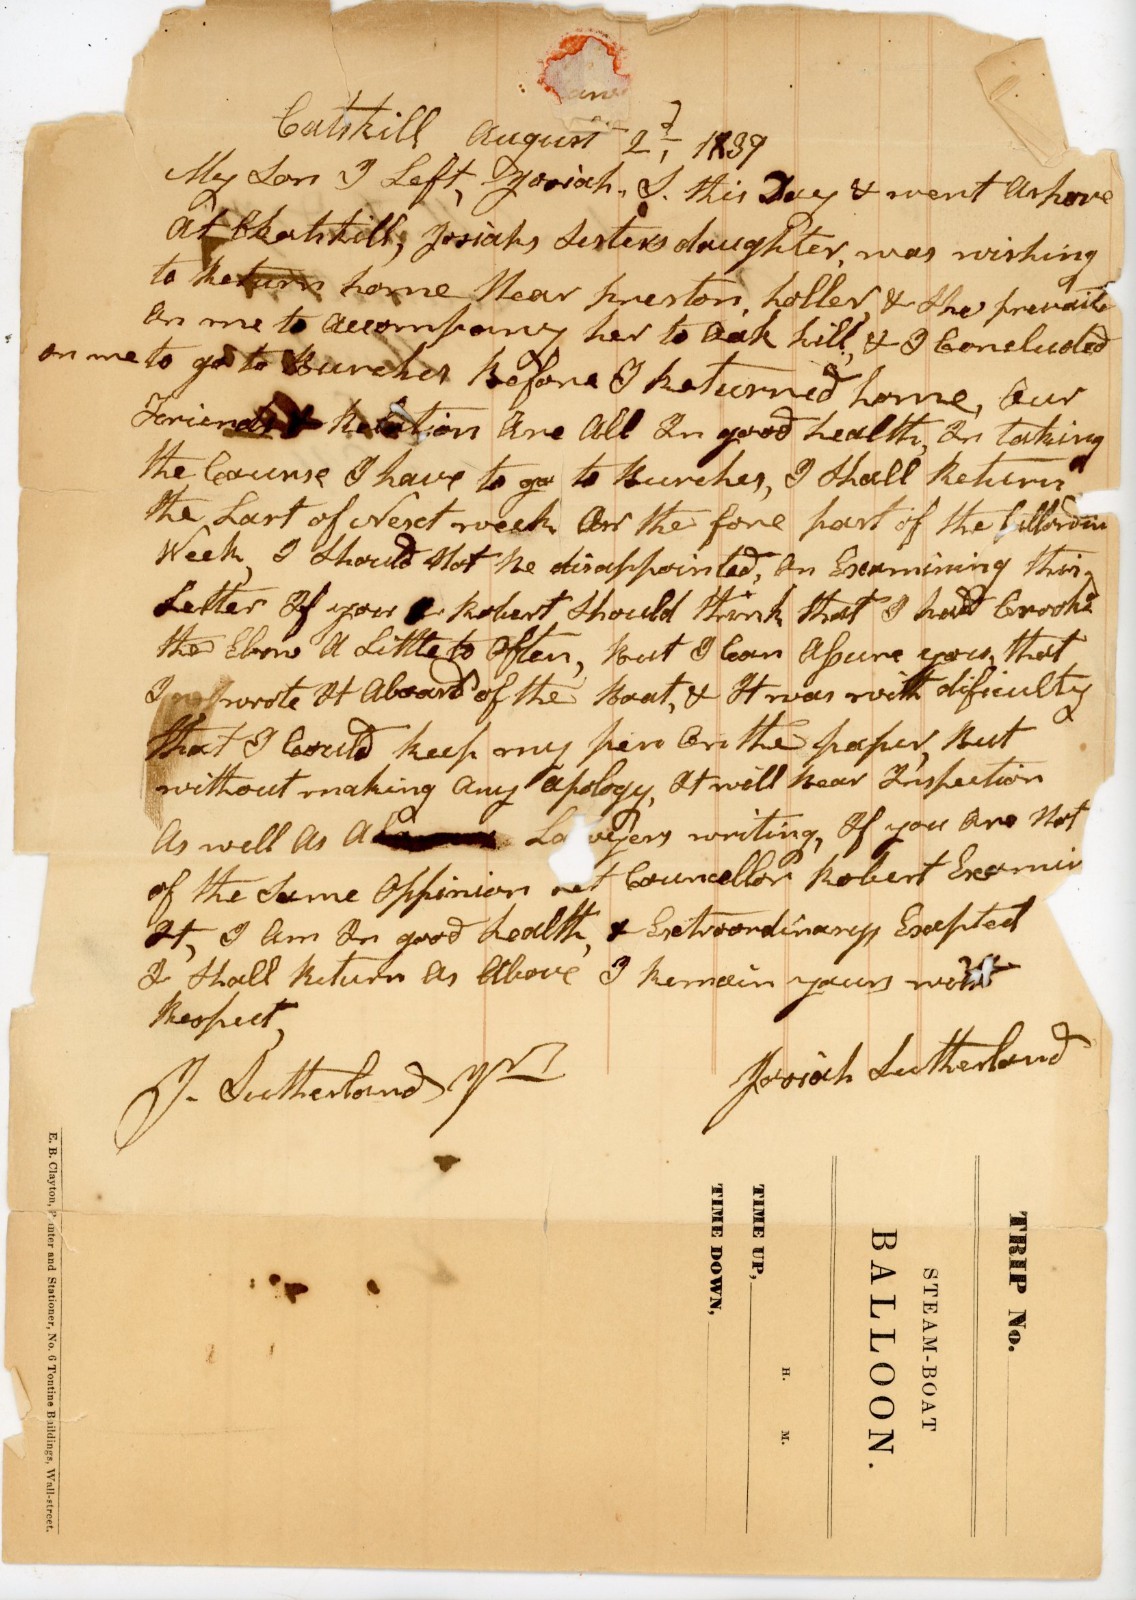 Catskill August 2d, 1839
My Son I Left, Josiah. S. this Day & went Ashore
At Chatskill, Josiahs Sisters daughter, was wishing
to Return home Near preston, holler, & she prevaile
on me to accompany her to oak hill, & I Concluded
on me to go to Burches Before I Returned home, Our
Friends & Relation Are All In good health, In taking
the Course I have to go to Burches, I Shall Return
the Last of Next week Or the fore part of the
Week, I Should Not Be disappointed, on Examining this
Letter If you or Robert Should think that I had Crookd
the Elbow A Little to Often, But I Can Assure you, that
I wrote It Aboard of the Boat, & It was with dificulty
that I Could keep my pen On the paper, But
without making Any apology, It will Bear Inspection
As well As A Lawyers writing, If you Are Not
of the Same Oppinion Let Councellor Robert Examin
It, I Am In good health, & Extroordinary Exsepted
I Shall Return As Above I Remain yours with
Respect,
J. Sutherland Jr
Josiah Sutherland
TRIP No.
STEAM-BOAT
BALLOON.
H. M.
TIME UP,
TIME DOWN,
E. B. Clayton, Printer and Stationer, No. 6 Tontine Buildings, Wall-street.